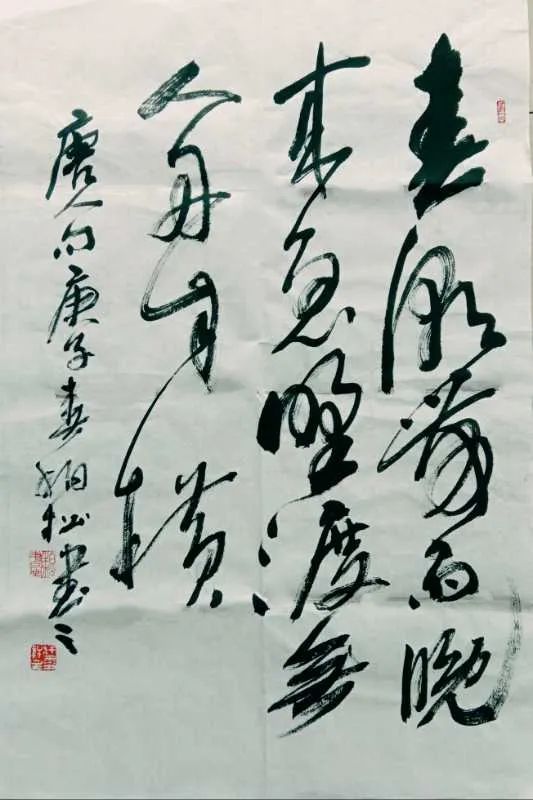 春潮带雨晚
来急野渡无
人舟自横
唐人句庚子春柏松书之